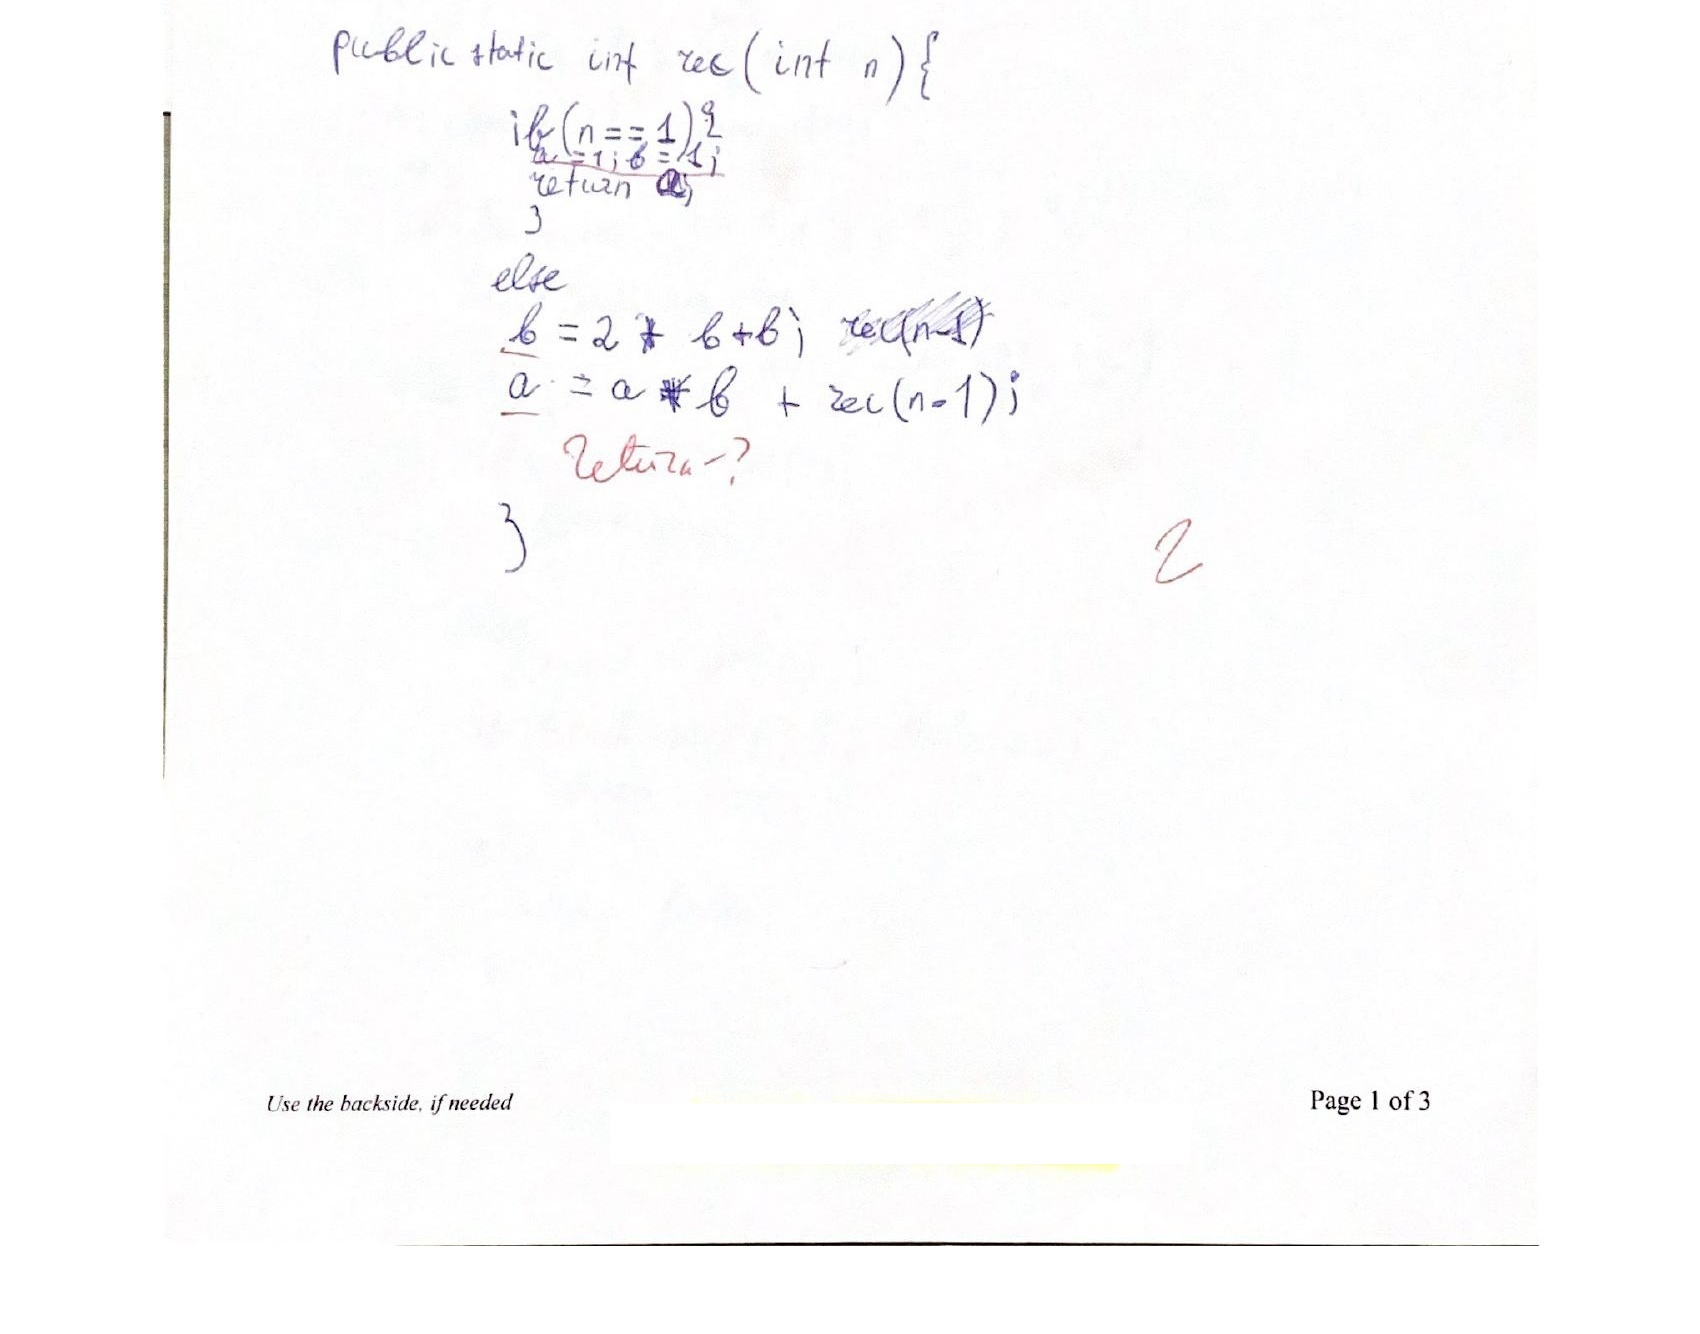 public static int rec(int n){
if(n==1){
a=1; b=1;
return a;
}
else
b = 2 * b+b; rec(n-1)
a = a * b + rec(n-1);
return-?
}
2
Use the backside, if needed
Page 1 of 3